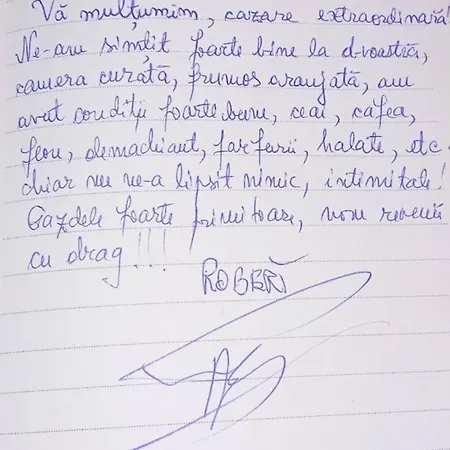 Vă mulțumim, cazare extraordinară!
Ne-am simțit foarte bine la d-voastră,
camera curată, frumos aranjată, am
avut condiții foarte bune, ceai, cafea,
feon, demachiant, farfurii, halate, etc.
chiar nu ne-a lipsit nimic, intimitate!
Gazdele foarte primitoare, vom reveni
cu drag!!!
ROGER